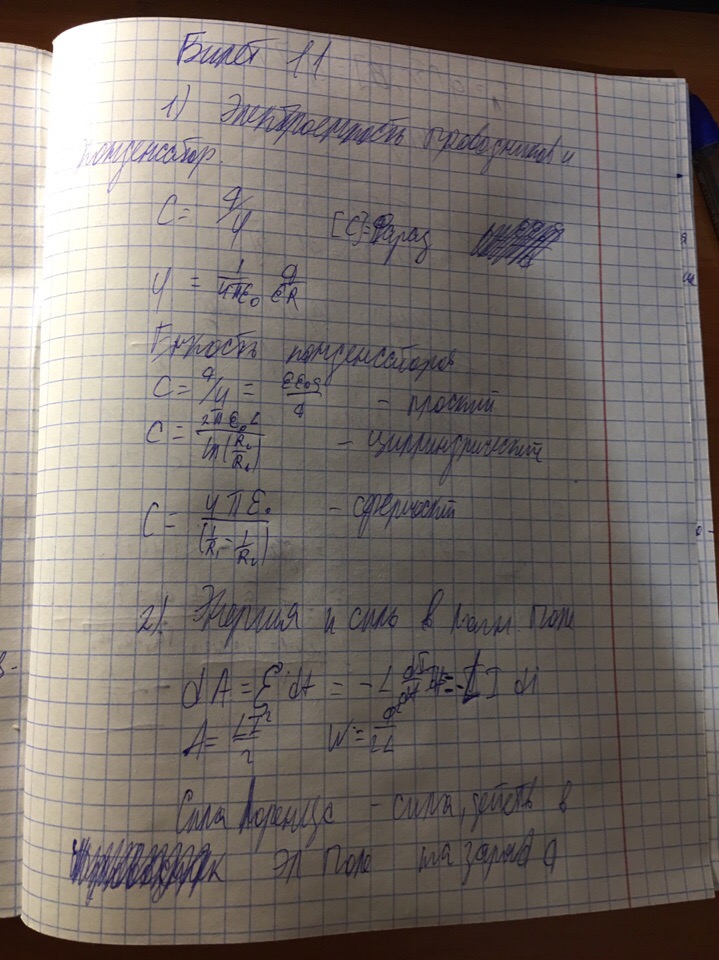 Билет 11
1) Электроемкость проводников и
конденсатор.
C = q/φ [C]=Фарад
φ = 1/4πε₀ q/εR
Емкость конденсаторов
C = q/φ = εε₀S/d - плоский
C = 2πε₀L/ln(R₂/R₁) - цилиндрический
C = 4πε₀/(1/R₁ - 1/R₂) - сферический
2). Энергия и силы в магн. поле
dA = ℰi dt = -L dI/dt = -LI di
A = LI²/2 W = Φ²/2L
Сила Лоренца - сила, действ в
эл поле на заряд q